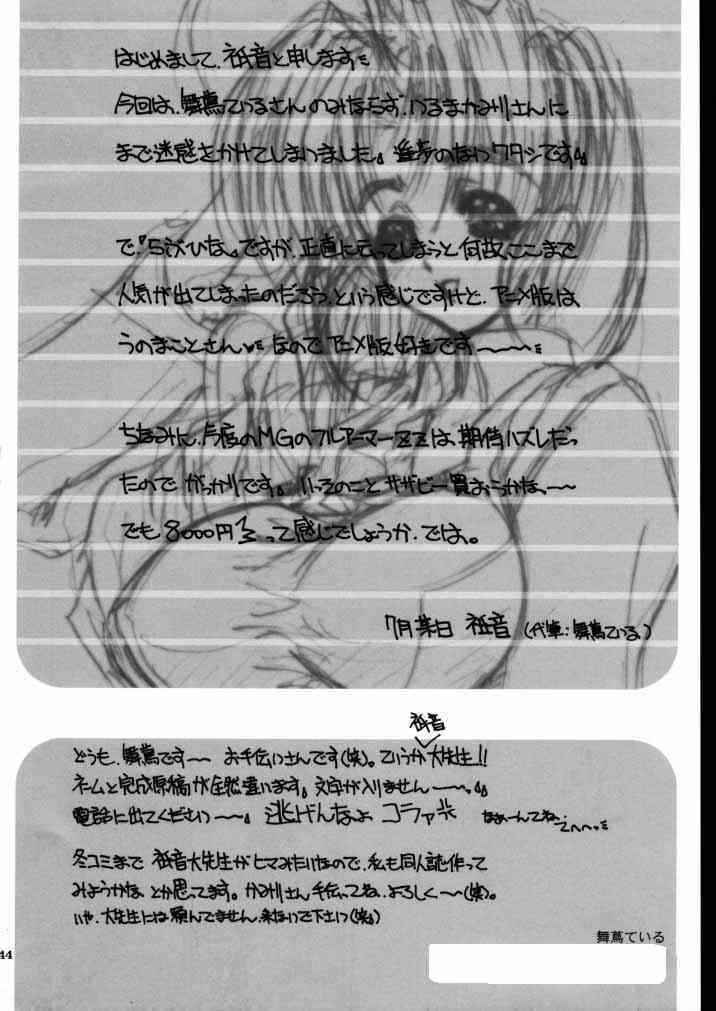 はじめまして、祇音と申します
今回は、舞蔦ているさんのみならず、かるまかみ川さんに
まで迷惑をかけてしまいました。進歩のないワタシです。
で『らぶひな』ですが、正直に云ってしまうと何故、ここまで
人気が出てしまったのだろう、という感じですけど、アニメ版は
うのまことさん なのでアニメ版好きです〜〜〜
ちなみに、今度のMGのフルアーマーZZは、期待ハズレだっ
たので がっかりです。いっそのことサザビー買おうかな、〜〜
でも8000円 って感じでしょうか、では。
7月某日 祇音 (代筆:舞蔦ている)
祇音
どうも、舞蔦です〜〜 お手伝いさんです(笑)。ていうか大先生!!
ネームと完成原稿が全然違います。文字が入りません〜〜。
電話に出てくださいっ〜〜。逃げんなよ コラァ なぁーんてね、てへへっ
冬コミまで 祇音大先生がヒマみたいなので、私も同人誌作って
みようかな とか思ってます。かみ川さん手伝ってね、よろしく〜〜(笑)。
いや、大先生には頼んでません、来ないで下さいっ(笑)
舞蔦ている
44